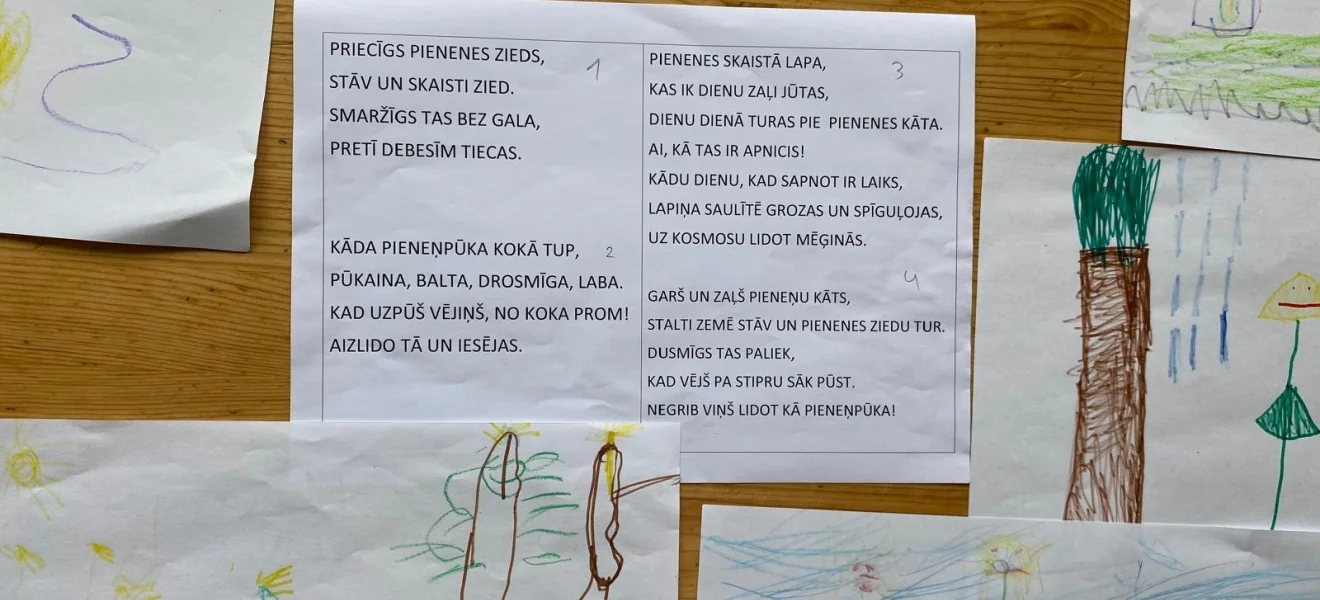 PRIECĪGS PIENENES ZIEDS, 1
STĀV UN SKAISTI ZIED.
SMARŽĪGS TAS BEZ GALA,
PRETĪ DEBESĪM TIECAS.
KĀDA PIENEŅPŪKA KOKĀ TUP, 2
PŪKAINA, BALTA, DROSMĪGA, LABA.
KAD UZPŪŠ VĒJIŅŠ, NO KOKA PROM!
AIZLIDO TĀ UN IESĒJAS.
PIENENES SKAISTĀ LAPA, 3
KAS IK DIENU ZAĻI JŪTAS,
DIENU DIENĀ TURAS PIE PIENENES KĀTA.
AI, KĀ TAS IR APNICIS!
KĀDU DIENU, KAD SAPNOT IR LAIKS,
LAPIŅA SAULĪTĒ GROZAS UN SPĪGUĻOJAS,
UZ KOSMOSU LIDOT MĒĢINĀS.
4
GARŠ UN ZAĻŠ PIENEŅU KĀTS,
STALTI ZEMĒ STĀV UN PIENENES ZIEDU TUR.
DUSMĪGS TAS PALIEK,
KAD VĒJŠ PA STIPRU SĀK PŪST.
NEGRIB VIŅŠ LIDOT KĀ PIENEŅPŪKA!